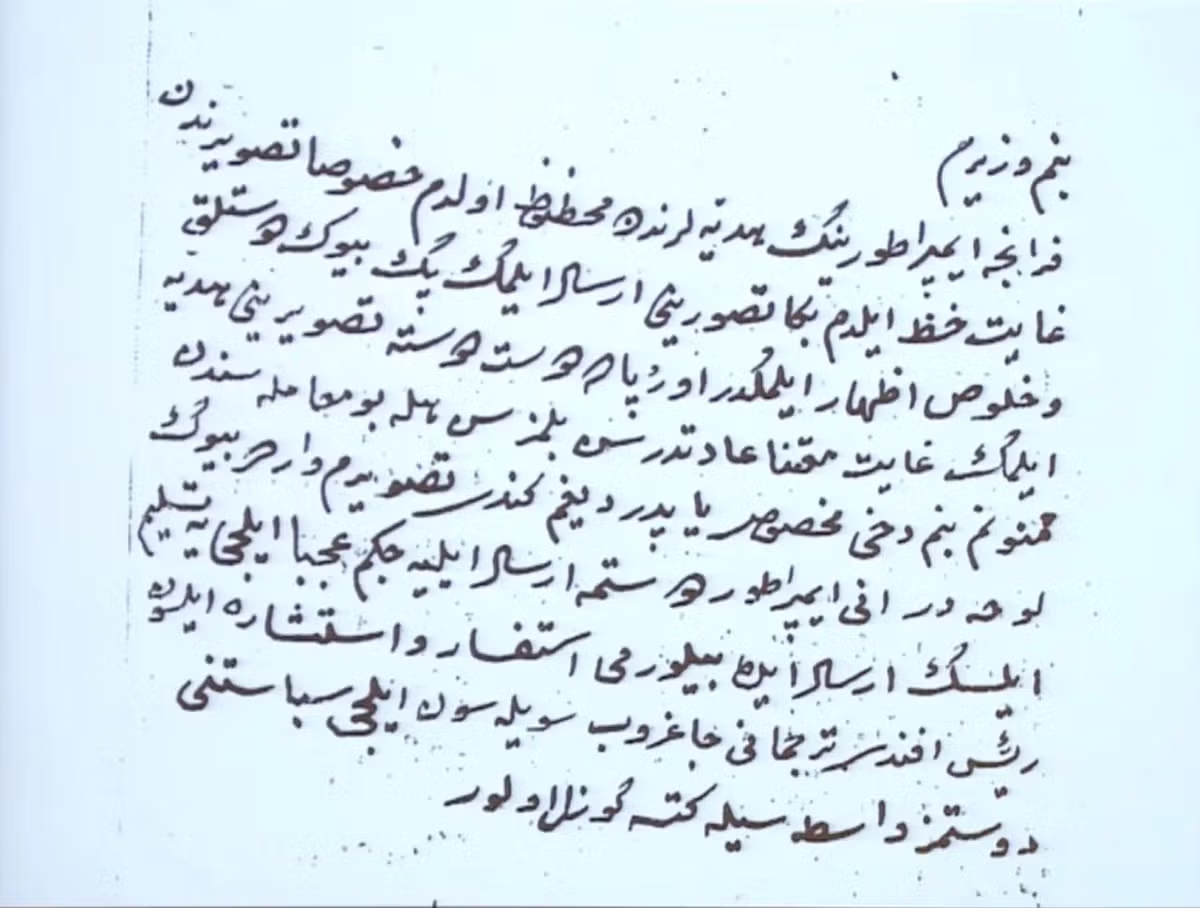 بنم وزيرم
فرانچه ايمپراطورينك هديه لرندن محظوظ اولدم خصوصا تصويرندن
غايت حظ ايلدم بكا تصويرينى ارسال ايلمك پك بيوك دوستلق
و خلوص اظهار ايلمكدر اورپاده دوست دوسته تصويرينى هديه
ايلمك غايت معتنا عادتدر سن بلمزسن هله بو معامله سندن
ممنونم بنم دخى مخصوص ياپدرديغم كندى تصويرم واردر بيوك
لوحه در انى ايمپراطور دوستمه ارسال ايليه جكم عجبا ايلچى يه تسليم
ايلسك ارسال ايده بيلورمى استفسار و استشاره ايلسون
رئيس افندى ترجمانى چاغروب سويله سون ايلچى سباستنى
دوستمز واسطه سيله كتسه كوزل اولور